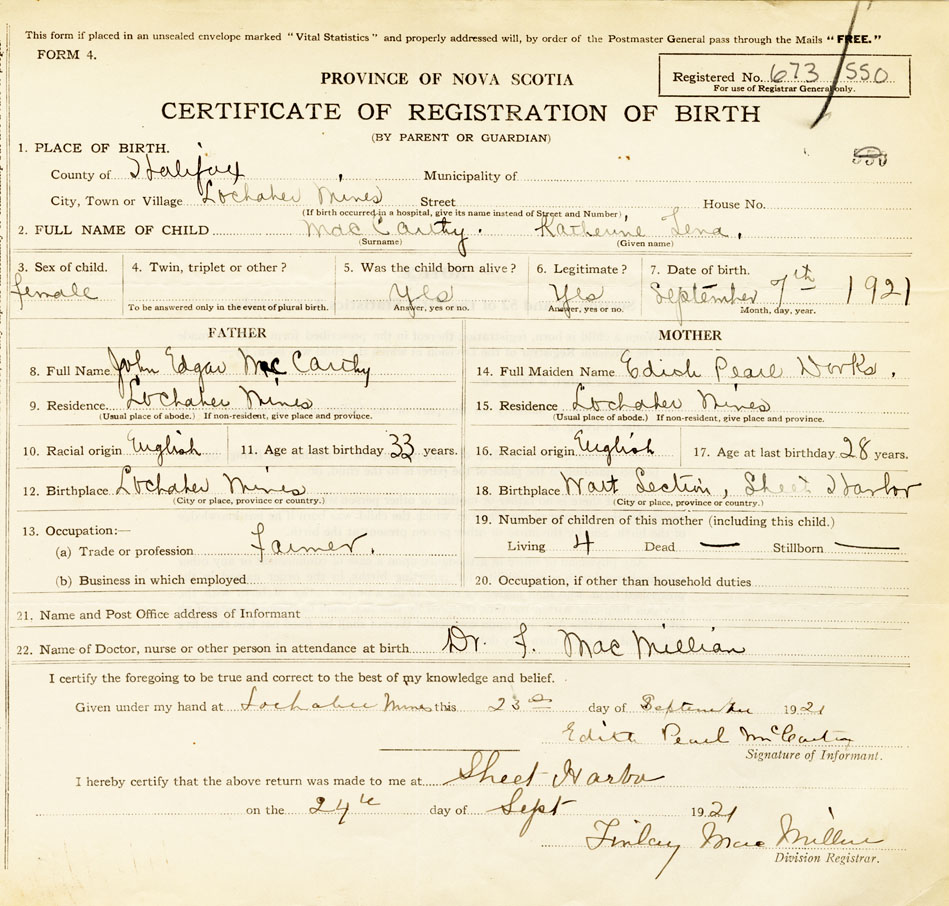 This form if placed in an unsealed envelope marked "Vital Statistics" and properly addressed will, by order of the Postmaster General pass through the Mails "FREE."
FORM 4.
PROVINCE OF NOVA SCOTIA
Registered No. 673/550
For use of Registrar General only.
CERTIFICATE OF REGISTRATION OF BIRTH
(BY PARENT OR GUARDIAN)
1. PLACE OF BIRTH.
County of Halifax, Municipality of
City, Town or Village Lochaber Mines Street House No.
(If birth occurred in a hospital, give its name instead of Street and Number)
2. FULL NAME OF CHILD Mac Carthy. Katherine Lena,
(Surname) (Given name)
3. Sex of child. 4. Twin, triplet or other? 5. Was the child born alive? 6. Legitimate? 7. Date of birth.
female Yes Yes September 7th 1921
To be answered only in the event of plural birth. Answer, yes or no. Answer, yes or no. Month, day, year.
FATHER MOTHER
8. Full Name John Edgar Mc Carthy 14. Full Maiden Name Edith Pearl
9. Residence Lochaber Mines 15. Residence Lochaber Mines
(Usual place of abode.) If non-resident, give place and province. (Usual place of abode.) If non-resident, give place and province.
10. Racial origin English 11. Age at last birthday 33 years. 16. Racial origin English 17. Age at last birthday 28 years.
12. Birthplace Lochaber Mines 18. Birthplace Section, Sheet Harbor
(City or place, province or country.) (City or place, province or country.)
13. Occupation:— 19. Number of children of this mother (including this child.)
(a) Trade or profession Farmer. Living 4 Dead — Stillborn —
(b) Business in which employed 20. Occupation, if other than household duties
21. Name and Post Office address of Informant
22. Name of Doctor, nurse or other person in attendance at birth Dr. F. Mac Millian
I certify the foregoing to be true and correct to the best of my knowledge and belief.
Given under my hand at Lochaber Mines this 23rd day of September 1921
Edith Pearl McCarthy
Signature of Informant.
I hereby certify that the above return was made to me at Sheet Harbor
on the 24th day of Sept 1921
Finlay Mac Millan
Division Registrar.